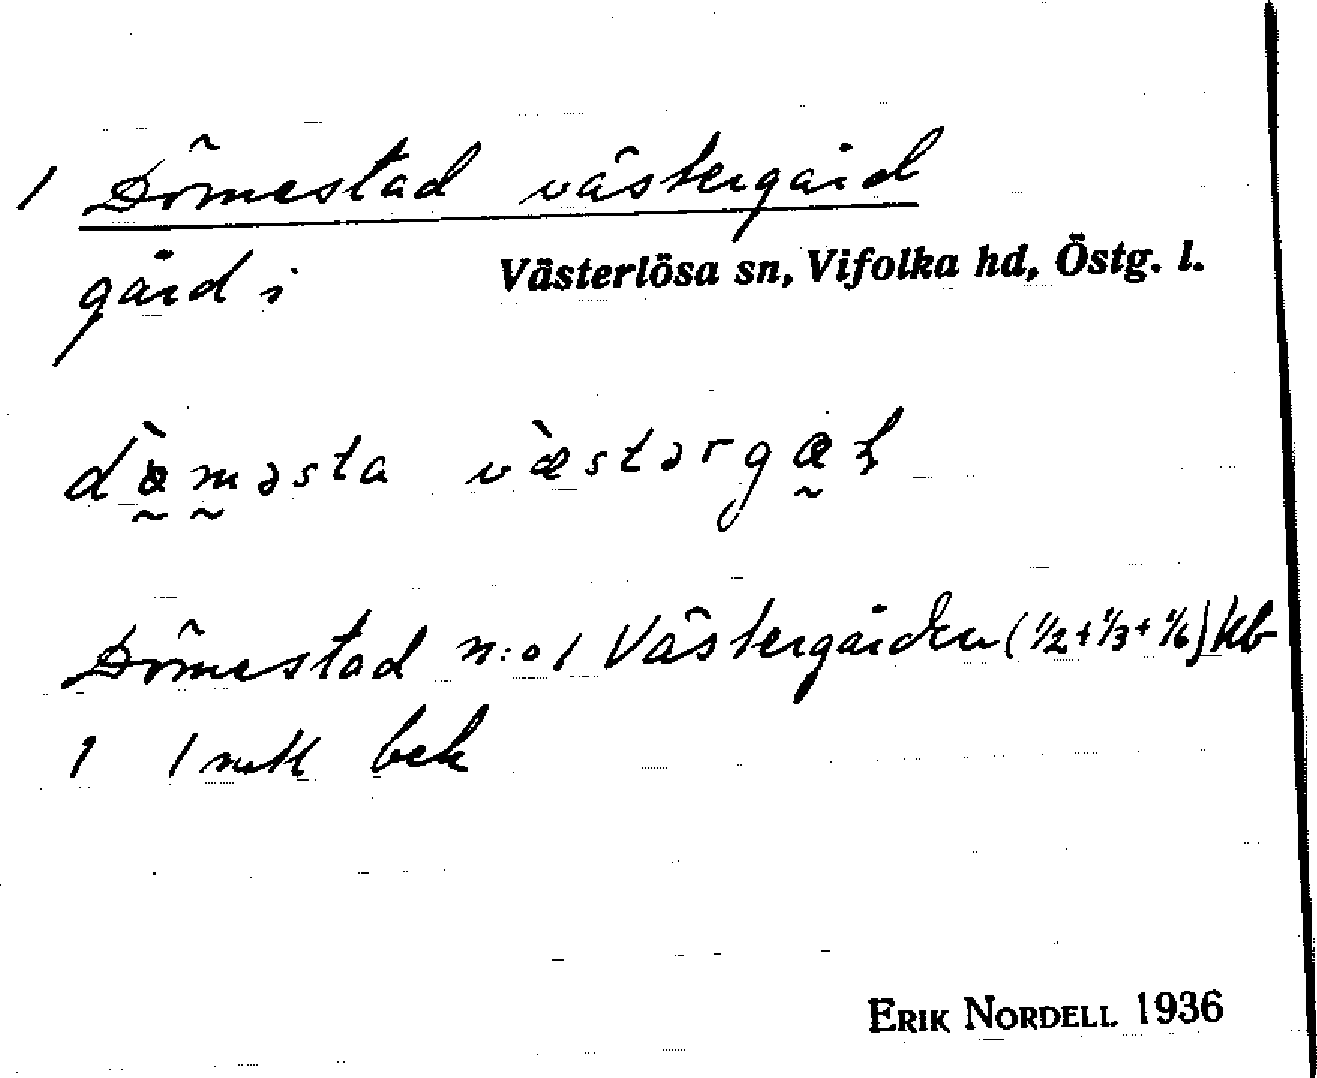 1 Dömestad västergård
gård i Västerlösa sn, Vifolka hd, Östg. l.
dæ̀məsta væ̀stərgɑɽ
Dömestad n:o 1 Västergården (1/2+1/3+1/6) Kb
1 1 mtl bek
ERIK NORDELL 1936